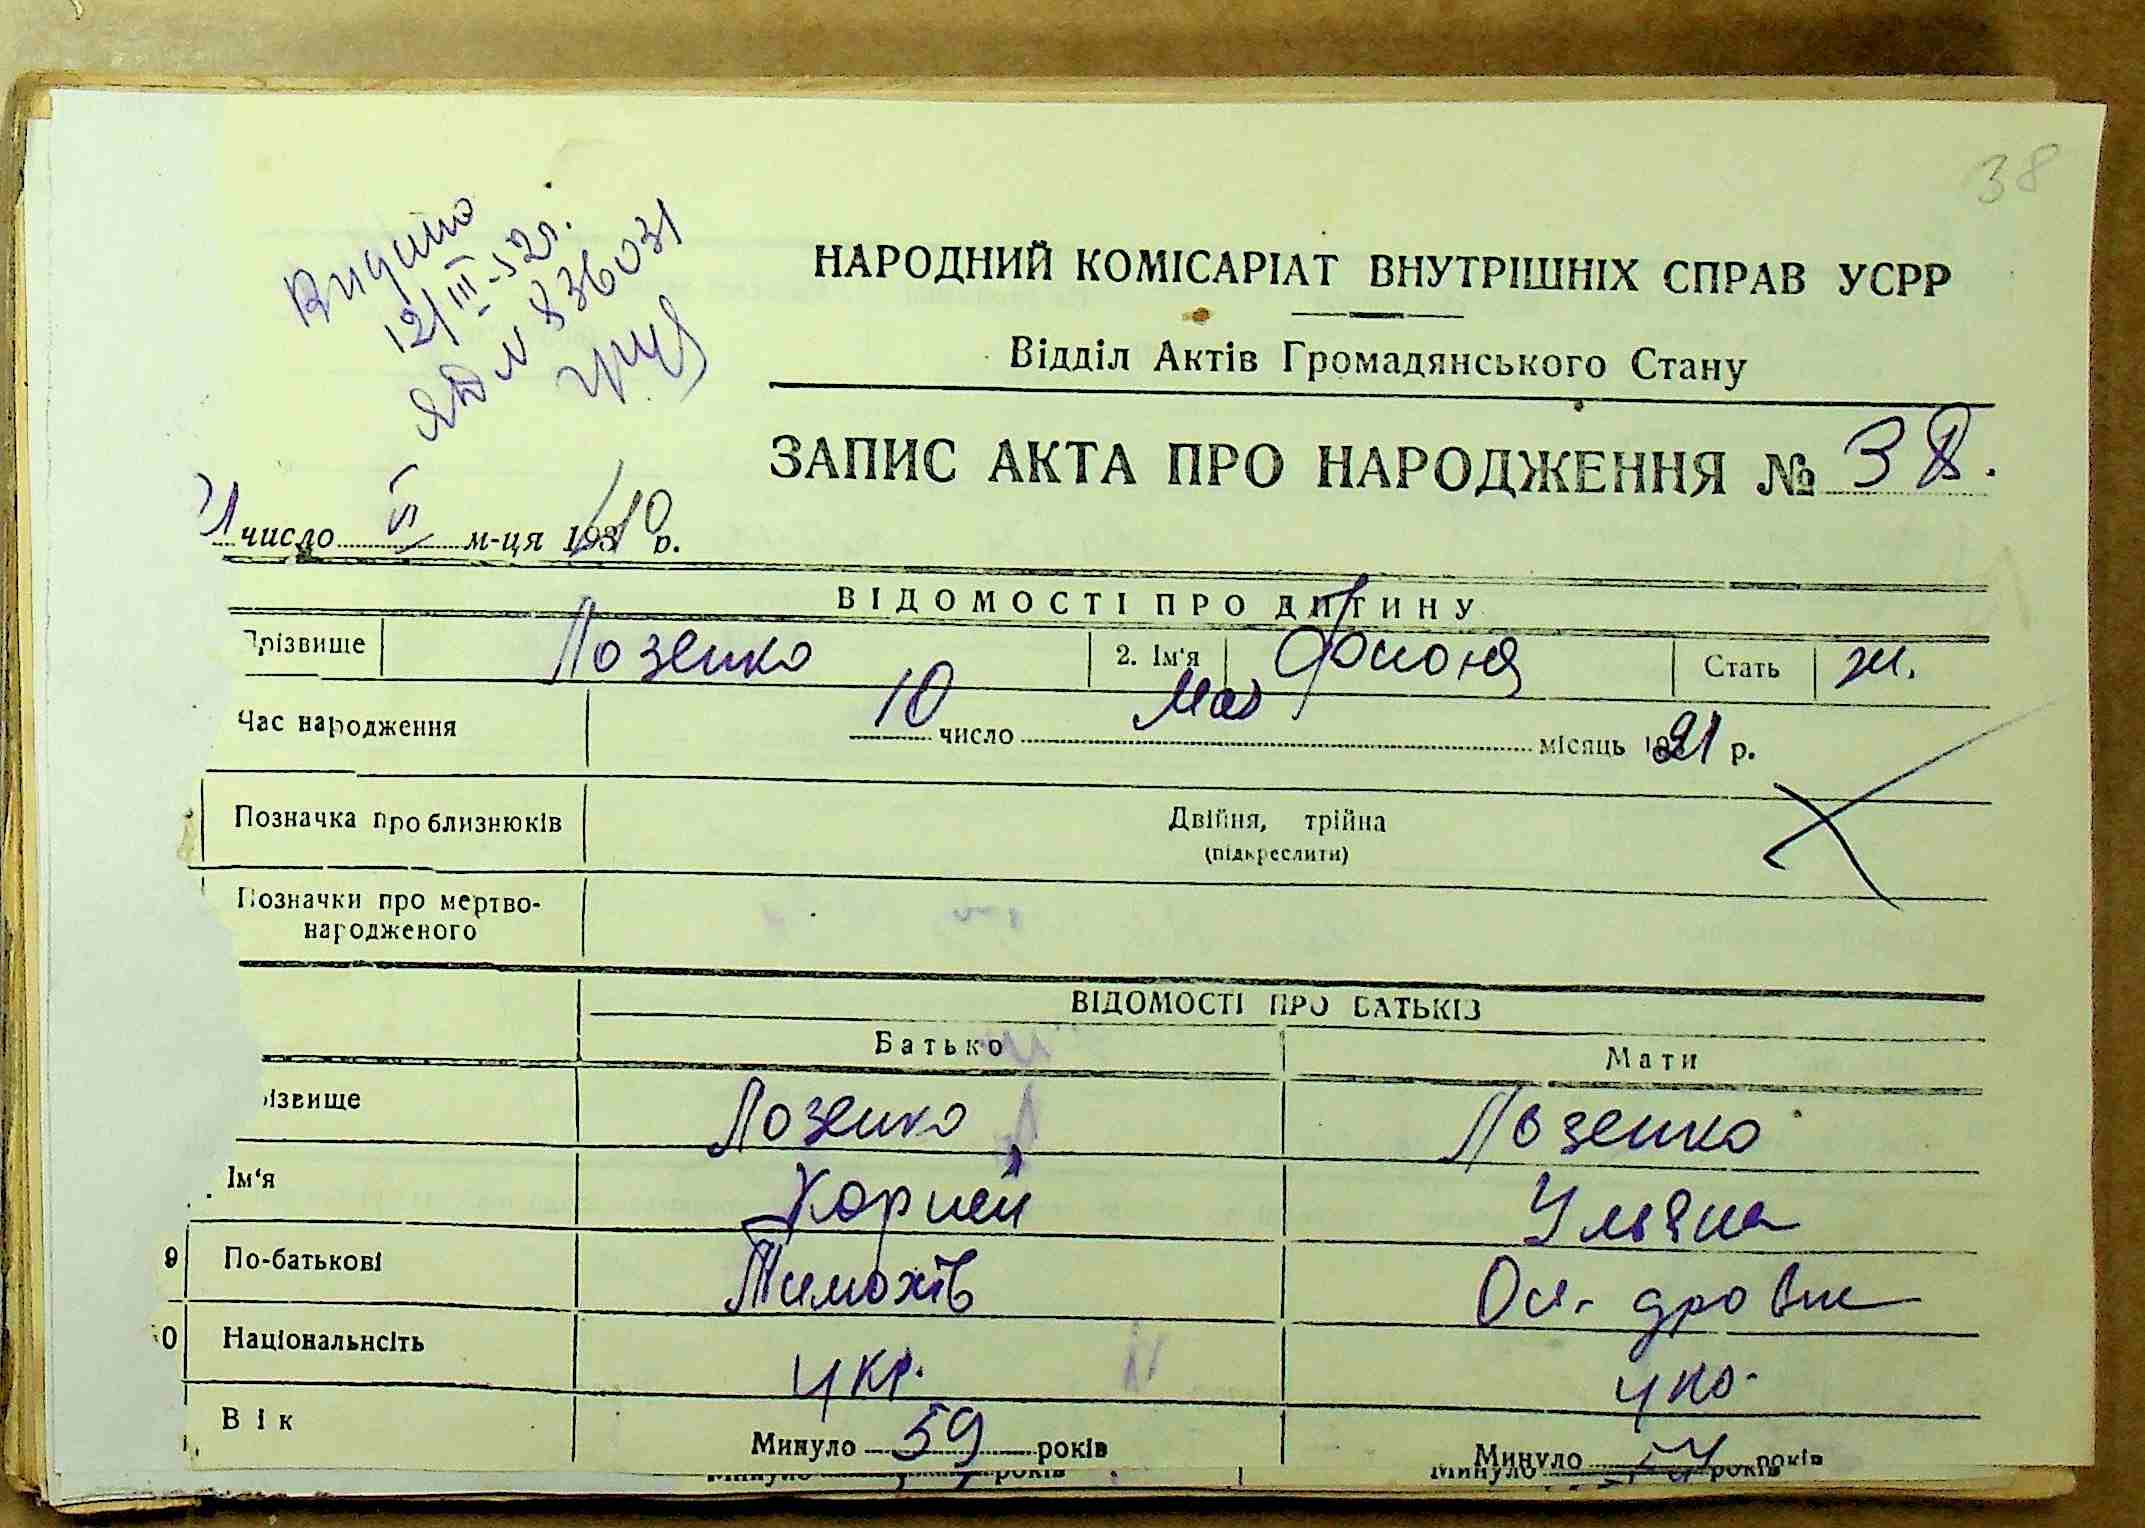 38
Видано
12/III-52 г.
ЯД № 836031
НАРОДНИЙ КОМІСАРІАТ ВНУТРІШНІХ СПРАВ УСРР
Відділ Актів Громадянського Стану
ЗАПИС АКТА ПРО НАРОДЖЕННЯ № 38.
21 число VI м-ця 1940 р.
ВІДОМОСТІ ПРО ДИТИНУ
Прізвище Лозенко 2. Ім'я Стать ж.
Час народження 10 число мая місяць 1921 р.
Позначка про близнюків Двійня, трійна
(підкреслити)
Позначки про мертво-
народженого
ВІДОМОСТІ ПРО БАТЬКІВ
Батько Мати
різвище Лозенко Лозенко
Ім'я Корней Ульяна
9 По-батькові Тимохів
0 Національнсіть укр. укр.
Вік Минуло 59 років Минуло 57 років
Минуло років Минуло років